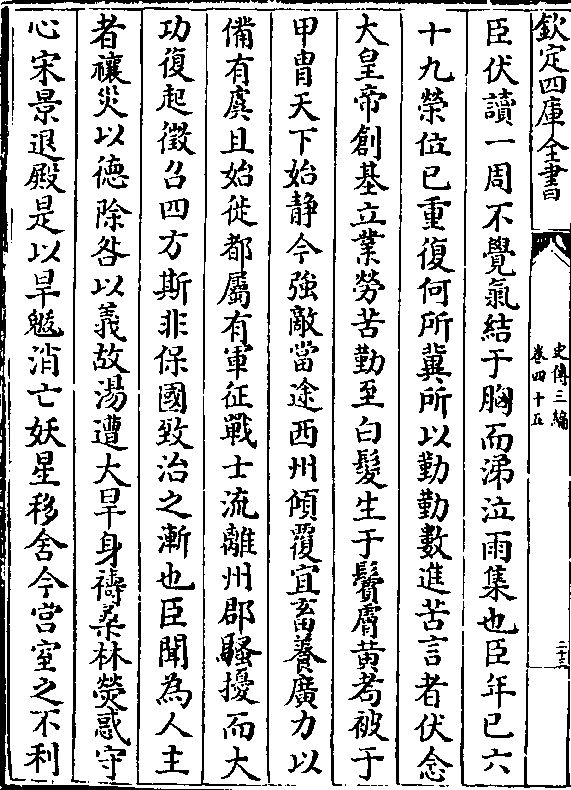 欽定四庫全書
史傳三編
卷四十五
二十三
臣伏讀一周不覺氣結于胸而涕泣雨集也臣年已六
十九榮位已重復何所冀所以勤勤數進苦言者伏念
大皇帝創基立業勞苦勤至白髮生于鬢膚黄耇被于
甲胄天下始静今強敵當途西州傾覆宜畜養廣力以
備有虞且始徙都屬有軍征戰士流離州郡騷擾而大
功復起徵召四方斯非保國致治之漸也臣聞為人主
者禳災以德除咎以義故湯遭大旱身禱桑林熒惑守
心宋景退殿是以旱魃消亡妖星移舍今宫室之不利